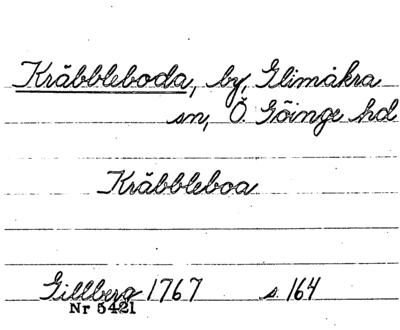 Kråbbleboda, by, Glimåkra
sn, Ö. Göinge hd
Kråbbleboa
Gillberg 1767 s. 164
Nr 5421